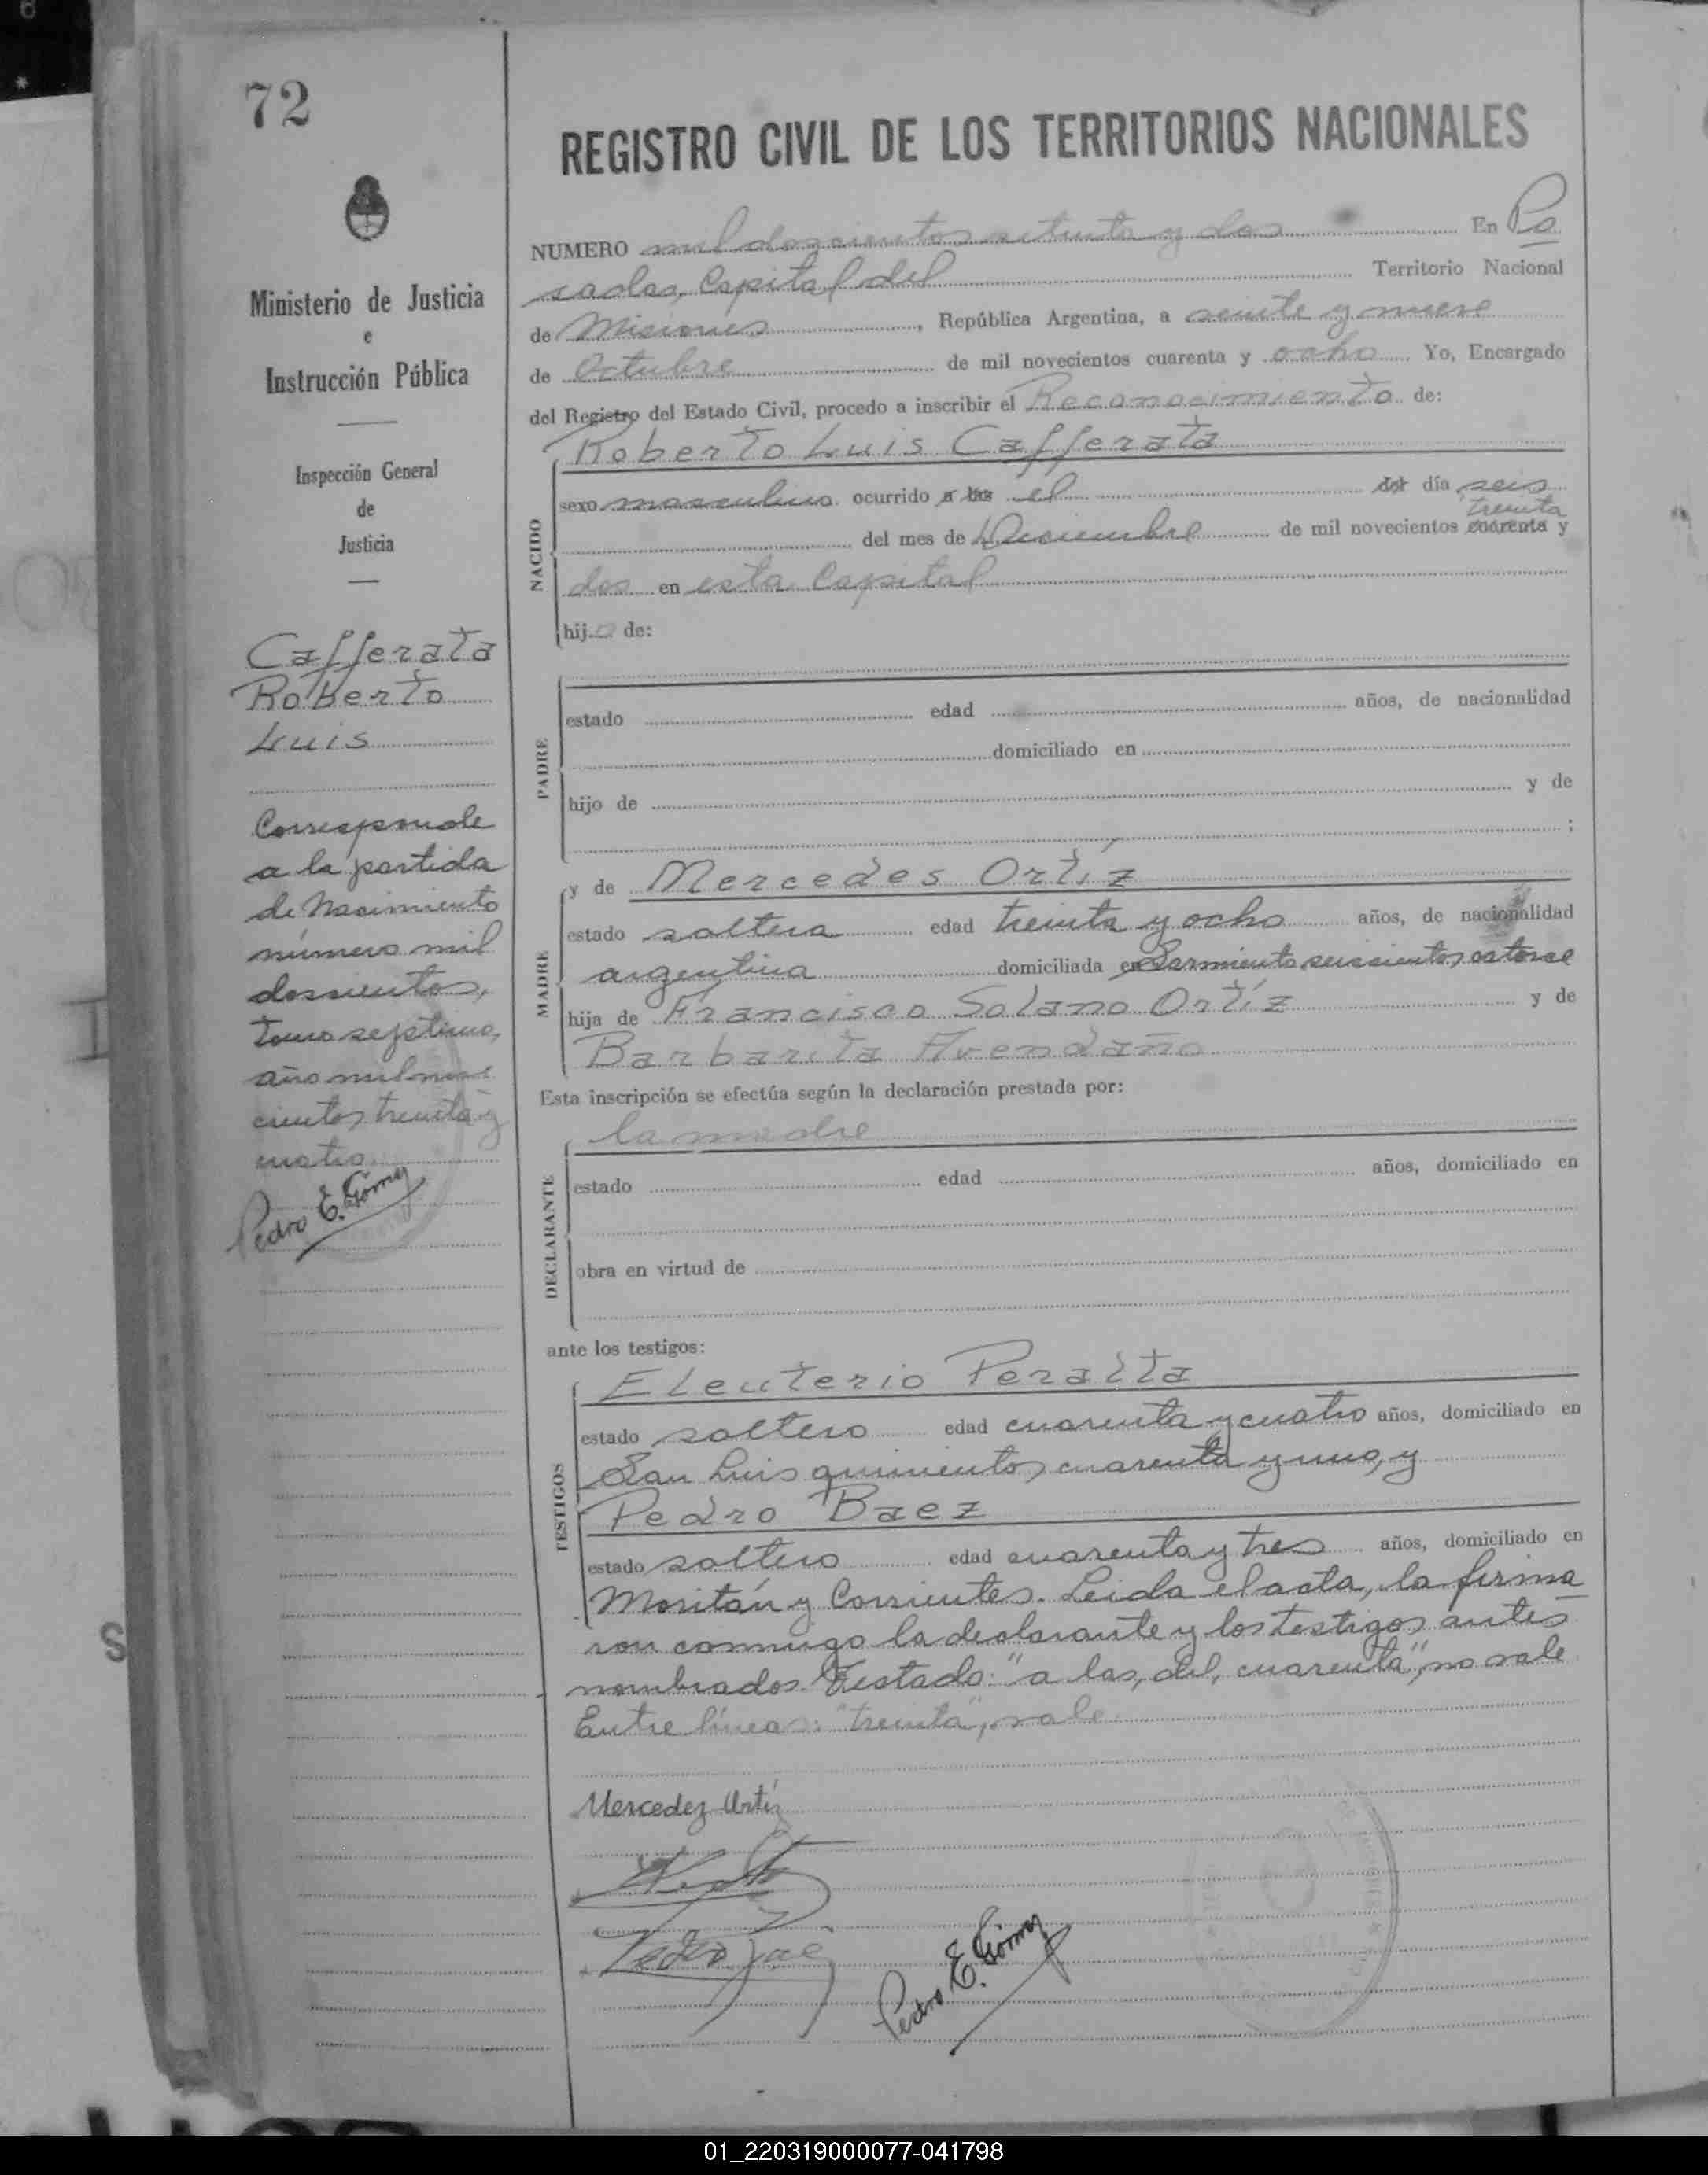 72
REGISTRO CIVIL DE LOS TERRITORIOS NACIONALES
Ministerio de Justicia
e
Instrucción Pública
Inspección General
de
Justicia
Cafferata
Roberto
Luis
Corresponde
a la partida
de Nacimiento
número mil
doscientos,
tomo septimo,
año mil nove
cientos treinta y
cuatro.
Pedro E. Gómez
NUMERO mil doscientos setenta y dos En Po
sadas, Capital del Territorio Nacional
de Misiones, República Argentina, a veinte y nueve
de Octubre de mil novecientos cuarenta y ocho Yo, Encargado
del Registro del Estado Civil, procedo a inscribir el Reconocimiento de:
NACIDO
Roberto Luis Cafferata
sexo masculino ocurrido a las el del día seis
treinta
del mes de Diciembre de mil novecientos cuarenta y
dos en esta Capital
hijo de:
PADRE
estado edad años, de nacionalidad
domiciliado en
hijo de y de
;
MADRE
y de Mercedes Ortíz
estado soltera edad treinta y ocho años, de nacionalidad
argentina domiciliada en Sarmiento seiscientos catorce
hija de Francisco Solano Ortíz y de
Barbarita Avendaño
Esta inscripción se efectúa según la declaración prestada por:
DECLARANTE
la madre
estado edad años, domiciliado en
obra en virtud de
ante los testigos:
TESTIGOS
Eleuterio Peralta
estado soltero edad cuarenta y cuatro años, domiciliado en
San Luis quinientos cuarenta y uno, y
Pedro Baez
estado soltero edad cuarenta y tres años, domiciliado en
Moritán y Corrientes. Leida el acta, la firma
ron conmigo la declarante y los testigos antes
nombrados. Testado: "a las, del, cuarenta", no vale
Entre líneas: "treinta", vale
Mercedez Ortiz
Pedro E. Gómez
01_220319000077-041798